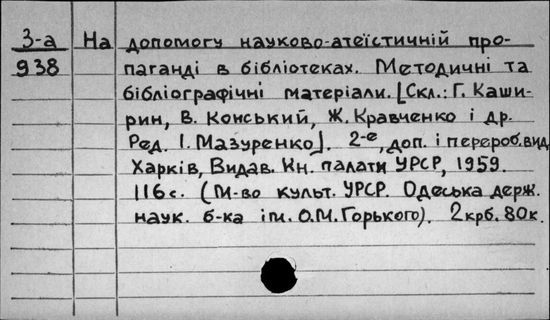 З-а
938
На допомогу науково-атеїстичній про-
паганді в бібліотеках. Методичні та
бібліографічні матеріали. [Скл.: Г. Каши-
рин, В. Конський, Ж. Кравченко і др.
Ред. І. Мазуренко]. 2-е, доп. і перероб. вид.
Харків, Видав. Кн. палати УРСР, 1959.
116 с. (М-во культ. УРСР. Одеська держ.
наук. б-ка ім. О.М. Горького). 2 крб. 80 к.